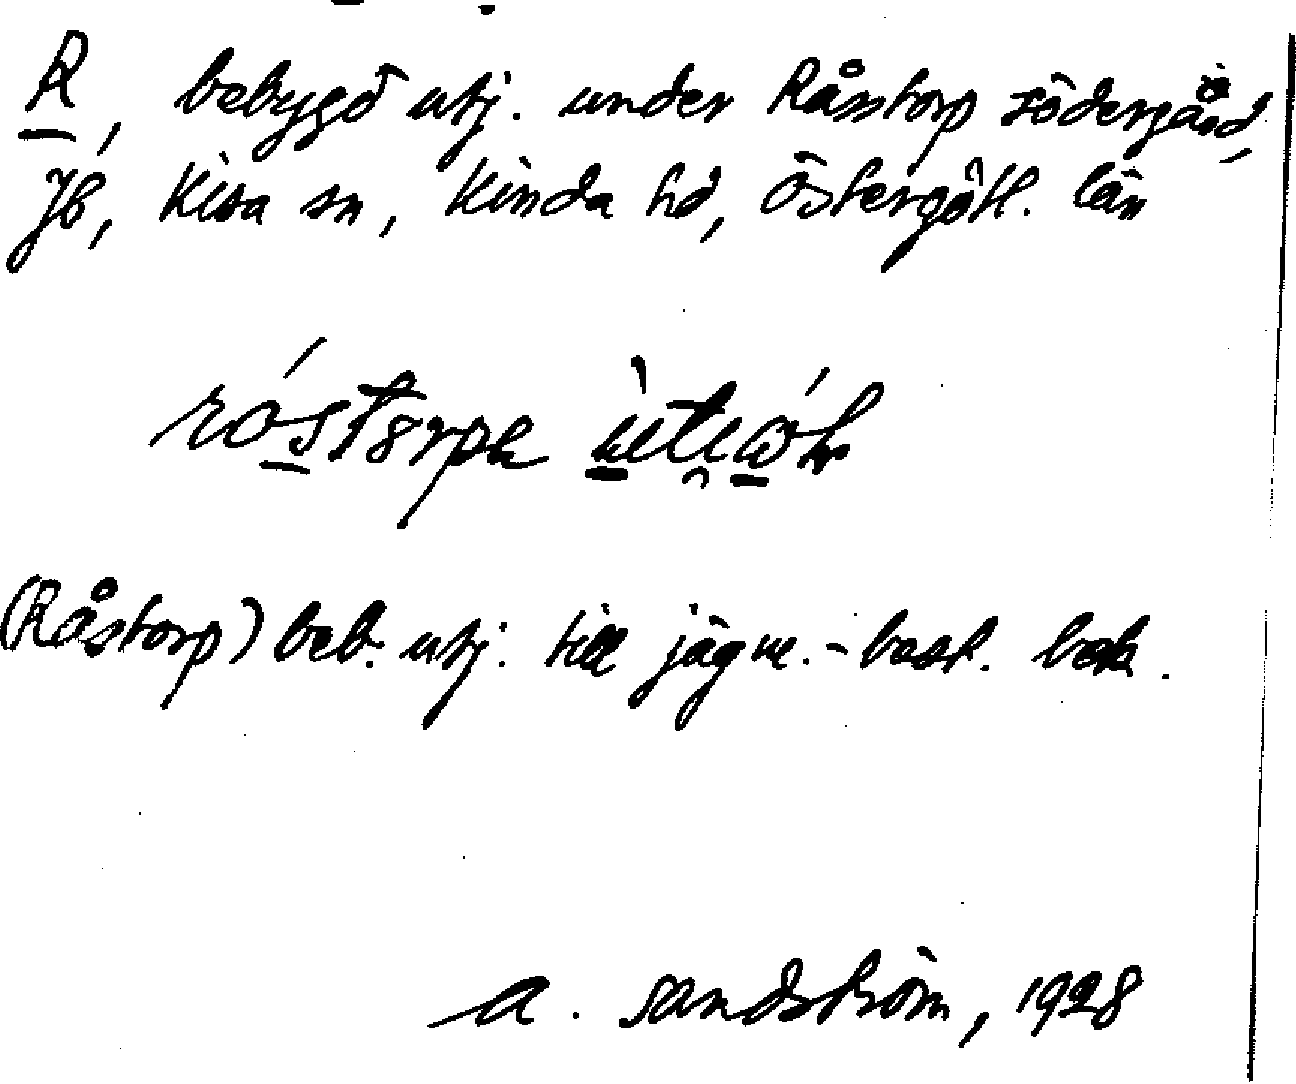 R, bebyggd utj. under Råstorp södergård,
Jb, Kisa sn, Kinda hd, Östergötl. län
(Råstorp) beb. utj. till jägm.-bost.
A. Sandström, 1928